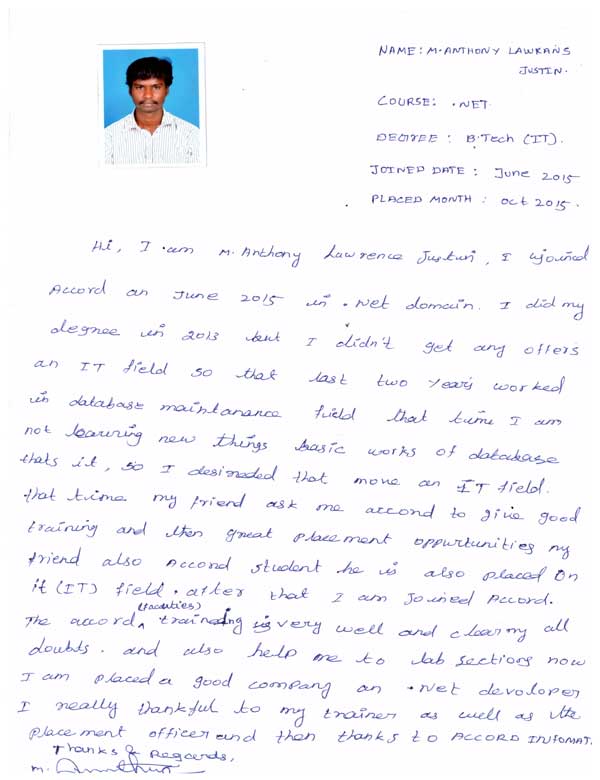 NAME: M. ANTHONY LAWRANS
JUSTIN.
COURSE: .NET.
DEGREE : B.Tech (IT).
JOINED DATE : June 2015
PLACED MONTH : Oct 2015.
Hi, I am M. Anthony Lawrence Justin, I ajoined
Accord an June 2015 in .Net domain. I did my
degree in 2013 but I didn't get any offers
an IT field so that last two years worked
in database maintanance field that time I am
not learning new things basic works of database
thats it, so I desireded that move an IT field.
that time my friend ask me accord to give good
training and then great placement oppurtunities my
friend also Accord student he is also placed On
it (IT) field. after that I am Joined Accord.
The accord (faculties) training is very well and clearing all
doubts. and also help me to lab sections now
I am placed a good company an .Net devoloper
I really thankful to my trainer as well as the
placement officer and then thanks to ACCORD INFOMAT.
Thanks & Regards,
M.